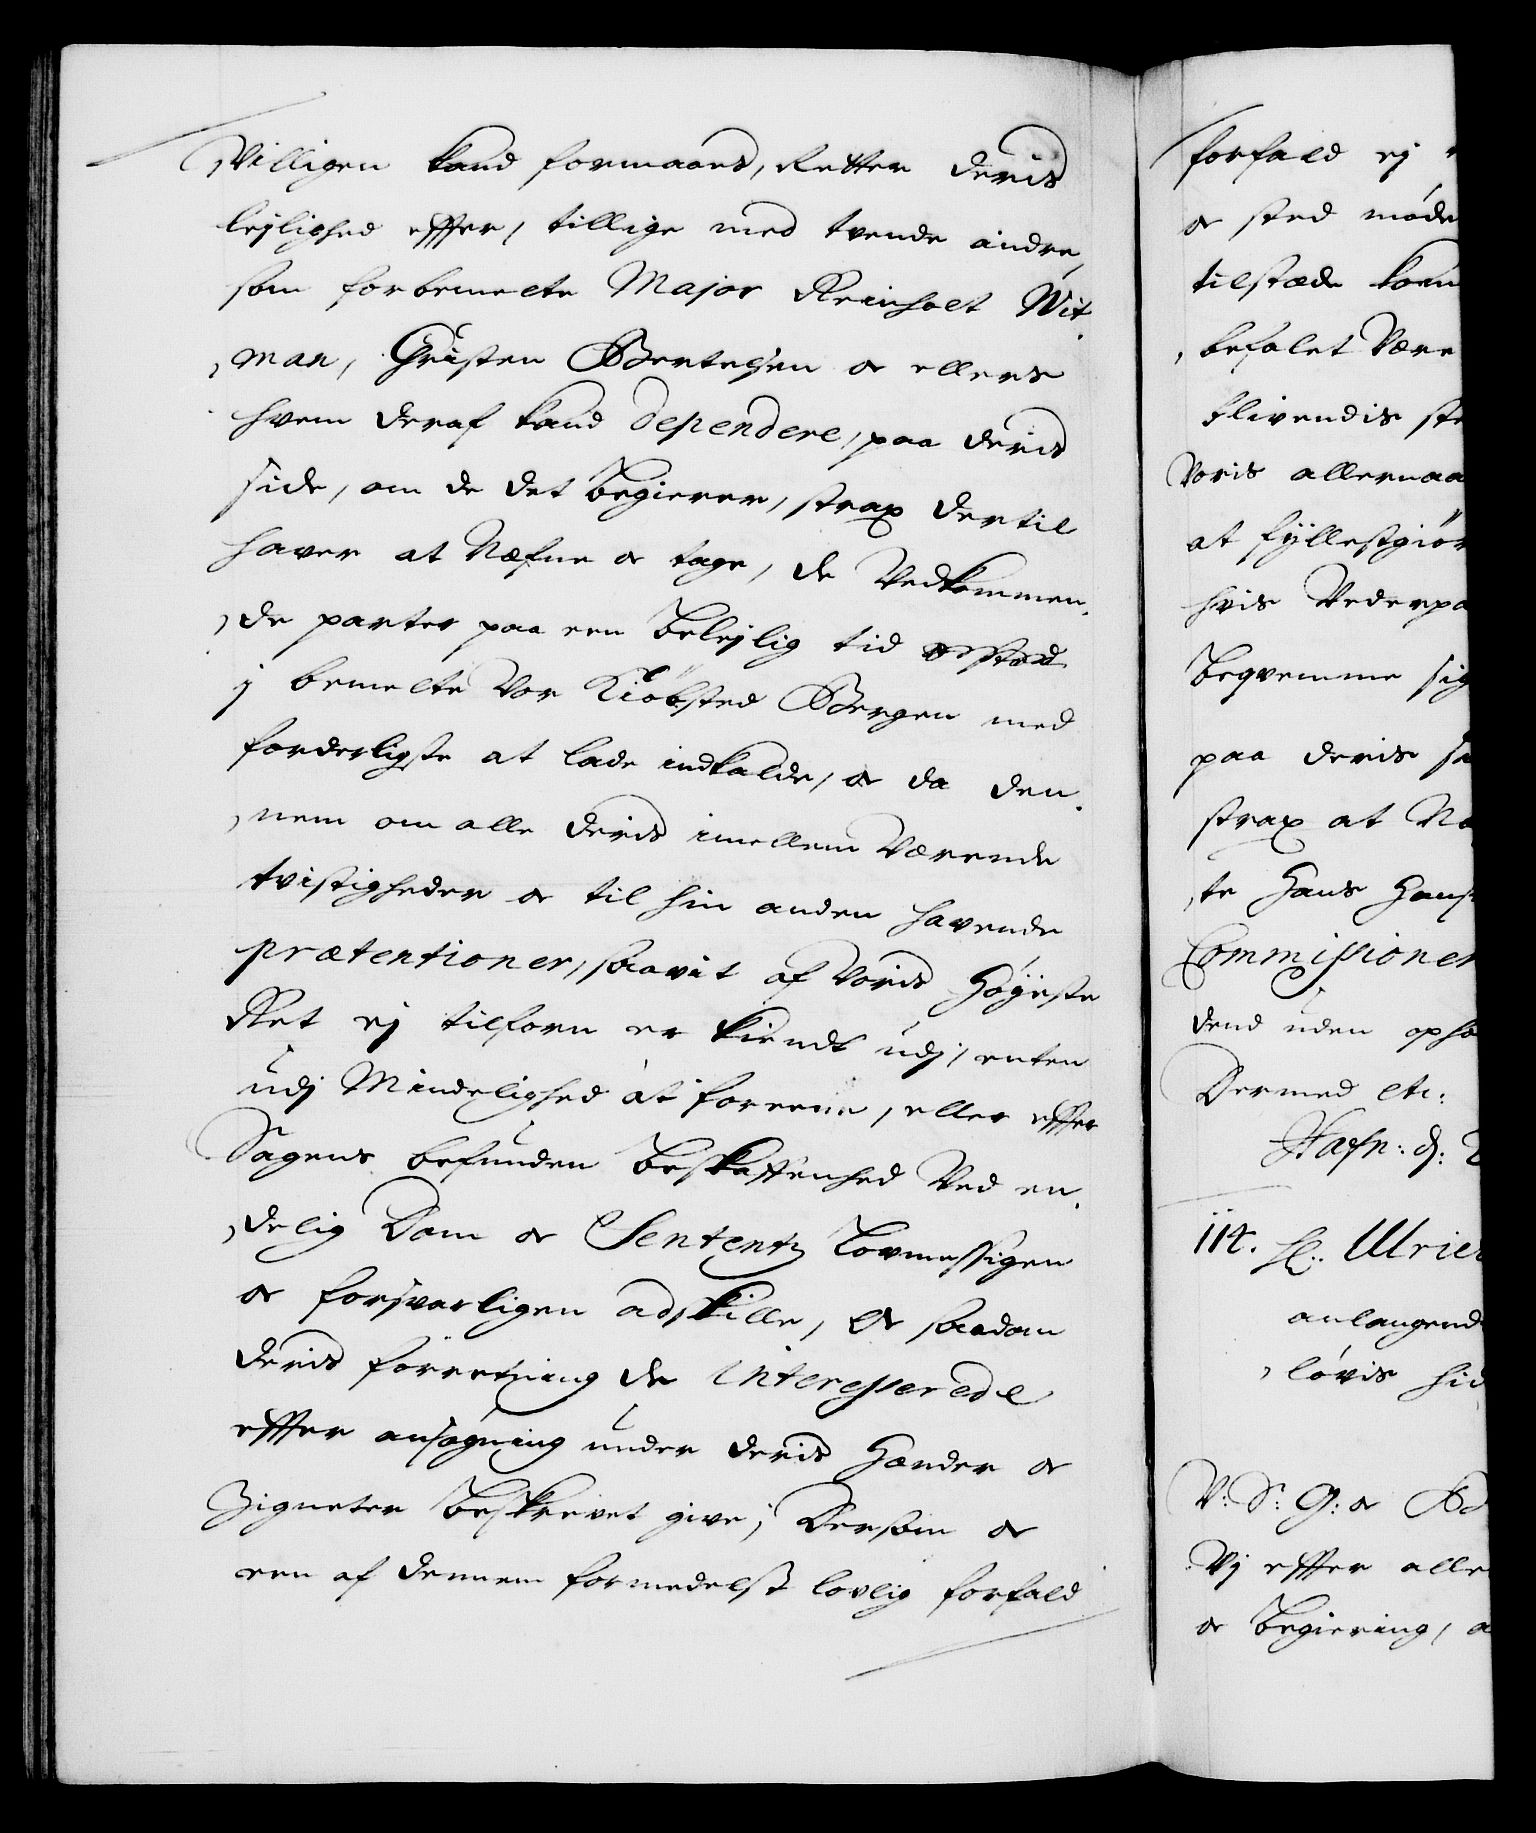 Villigen kand formaaes, Retter deris
lejlighed effter, tillige med tvende andre,
som forbemelte Major Reinholt Wit-
man, Christen Bertelsen og ellers
hvem deraf kand dependere, paa deris
side, om de det begierer, strax dertil
haver at Næfne og tage, de Vedkommen-
de parter paa een belejlig tid og stæd
j bemelte vor Kiöbsted Bergen med
forderligste at lade indkalde, og da den-
nem om alle deris imellem Værende
tvistigheder og til hin anden havende
prætentioner, saavit af Voris Höjeste
Ret ej tilforn er kiendt udj, enten
udj Mindelighed at foreene, eller effter
Sagens befunden beskaffenhed Ved en-
delig Dom og Sententz lovmessigen
og forsvarligen adskille, Og saadan
deris forretning de interesserede
effter ansögning under deris Hænder og
Zigneter beskrevet give; Dersom og
een af dennem formedelst lovlig forfald
forfald ej
og sted møde
tilstæde kom
befalet Være
blivendis ste
Voris allernaa
at fyllestgiör
hvis Vederpa
beqvemme sig
paa deris sa
strax at Næ
te Hans Hans
Commissioner
dend uden opho
Dermed etc:
Hafn: d: 2
114. Sl: Ulric
anlangend
lövis hid
V: S: G: og Be
Vj effter alle
og begiering, a